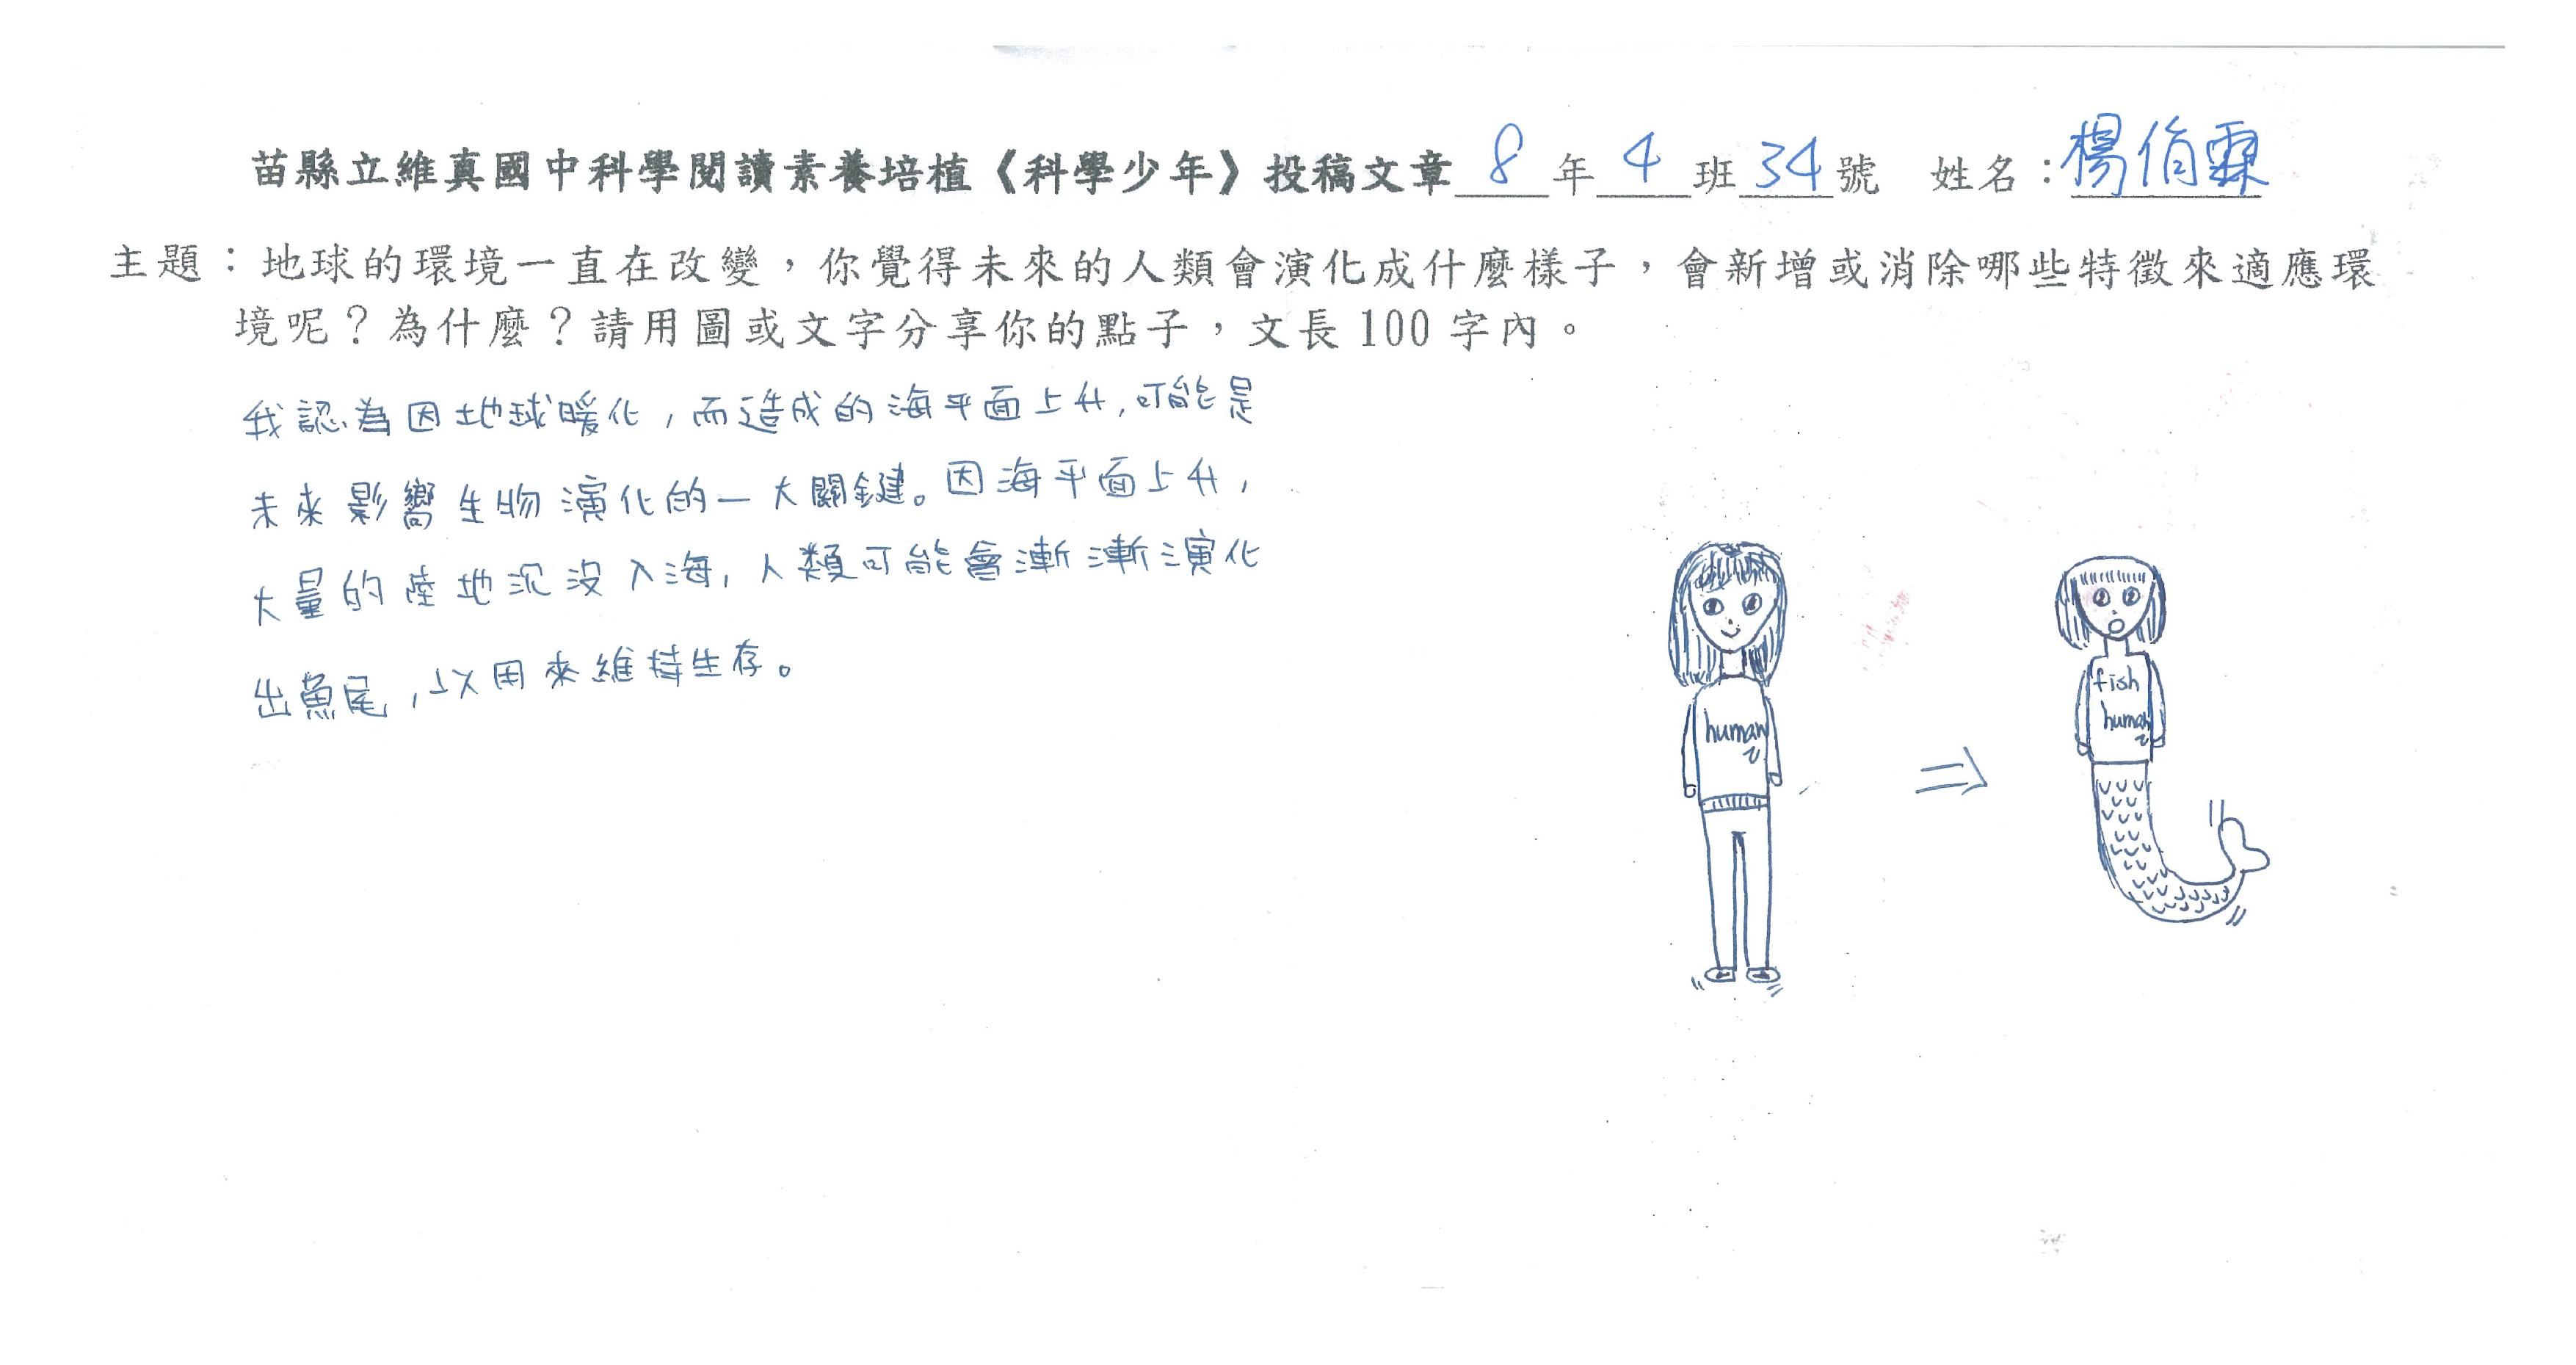 苗縣立維真國中科學閱讀素養培植《科學少年》投稿文章 8 年 4 班 34 號 姓名：楊
主題：地球的環境一直在改變，你覺得未來的人類會演化成什麼樣子，會新增或消除哪些特徵來適應環
境呢？為什麼？請用圖或文字分享你的點子，文長 100 字內。
我認為因地球暖化，而造成的海平面上升，可能是
未來影響生物演化的一大關鍵。因海平面上升，
大量的陸地沉沒入海，人類可能會漸漸演化
出魚尾，以用來維持生存。
human
fish
human